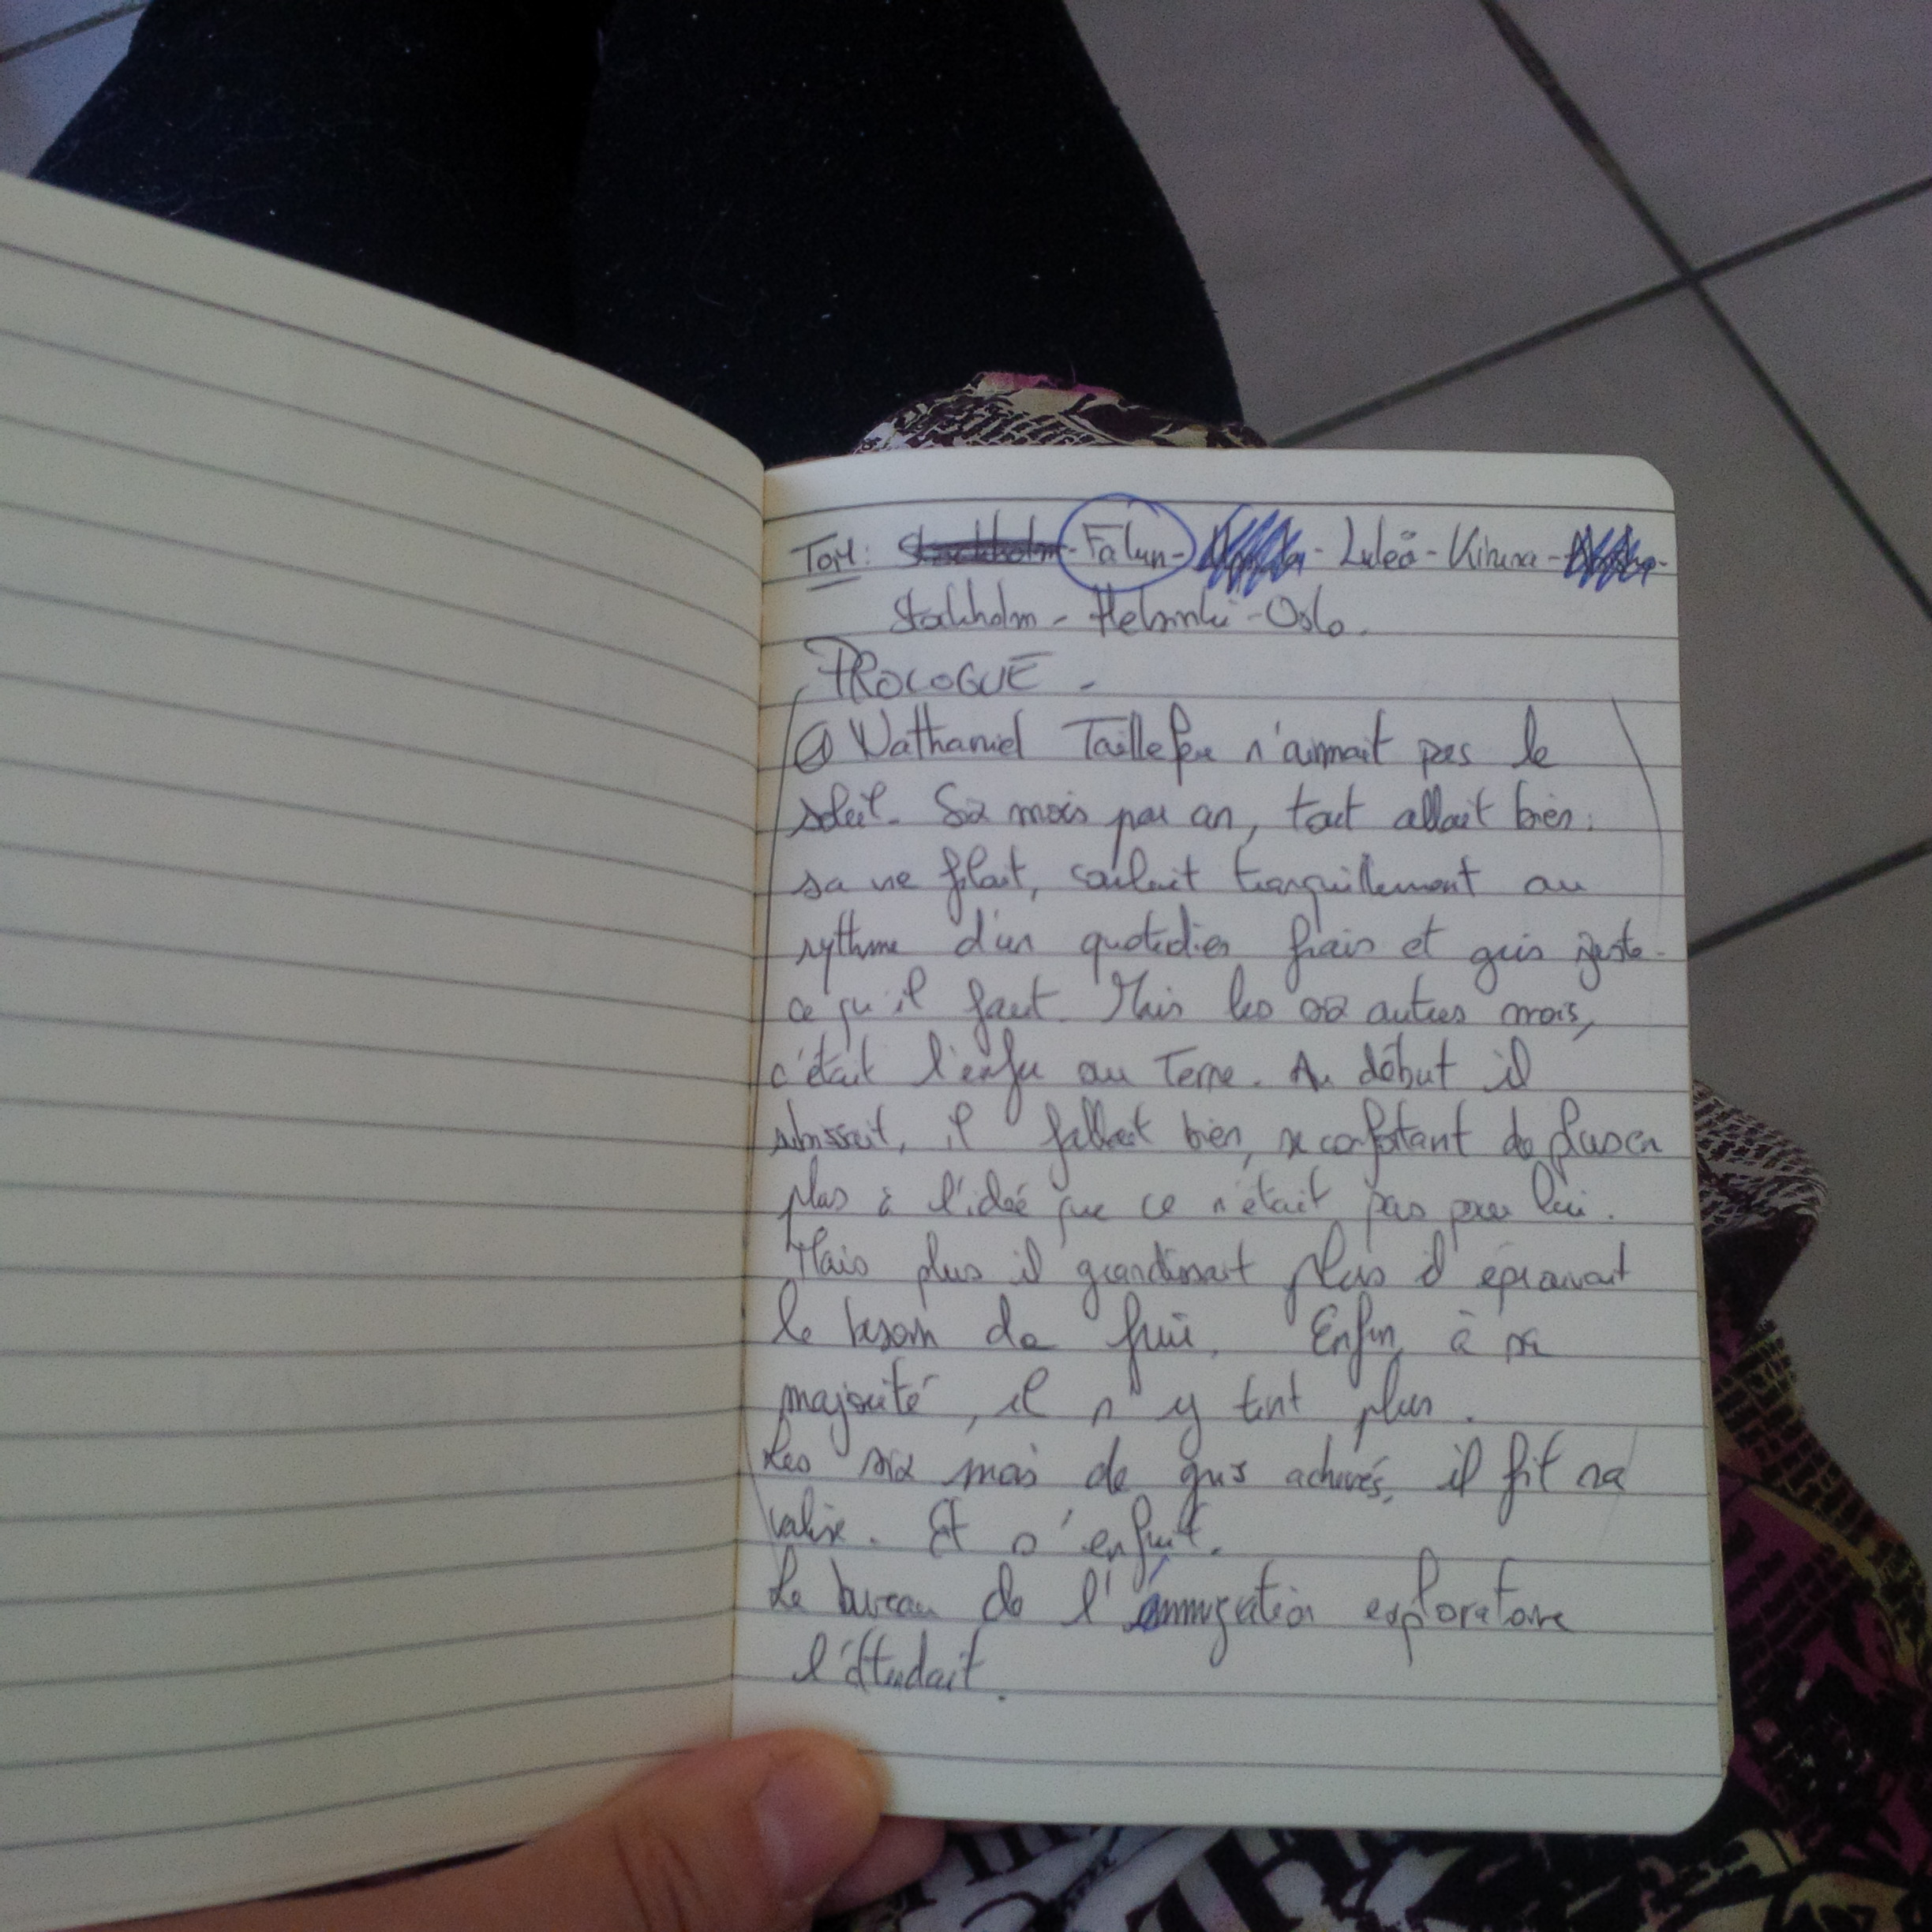 Stockholm - Falun - - Luleå - Kiruna -
Stockholm - Helsinki - Oslo.
PROLOGUE -
① Nathaniel Taillefer n'aimait pas le
soleil. Six mois par an, tout allait bien :
sa vie filait, coulait tranquillement au
rythme d'un quotidien frais et gris juste
ce qu'il faut. Mais les six autres mois,
c'était l'enfer sur Terre. Au début il
subissait, il fallait bien, se confortant de plus en
plus à l'idée que ce n'était pas pour lui.
Mais plus il grandissait plus il éprouvait
le besoin de fuir. Enfin, à sa
majorité, il n'y tint plus.
Les six mois de gris achevés, il fit sa
valise. Et s'enfuit.
Le bureau de l'émmigration exploratoire
l'étudait.